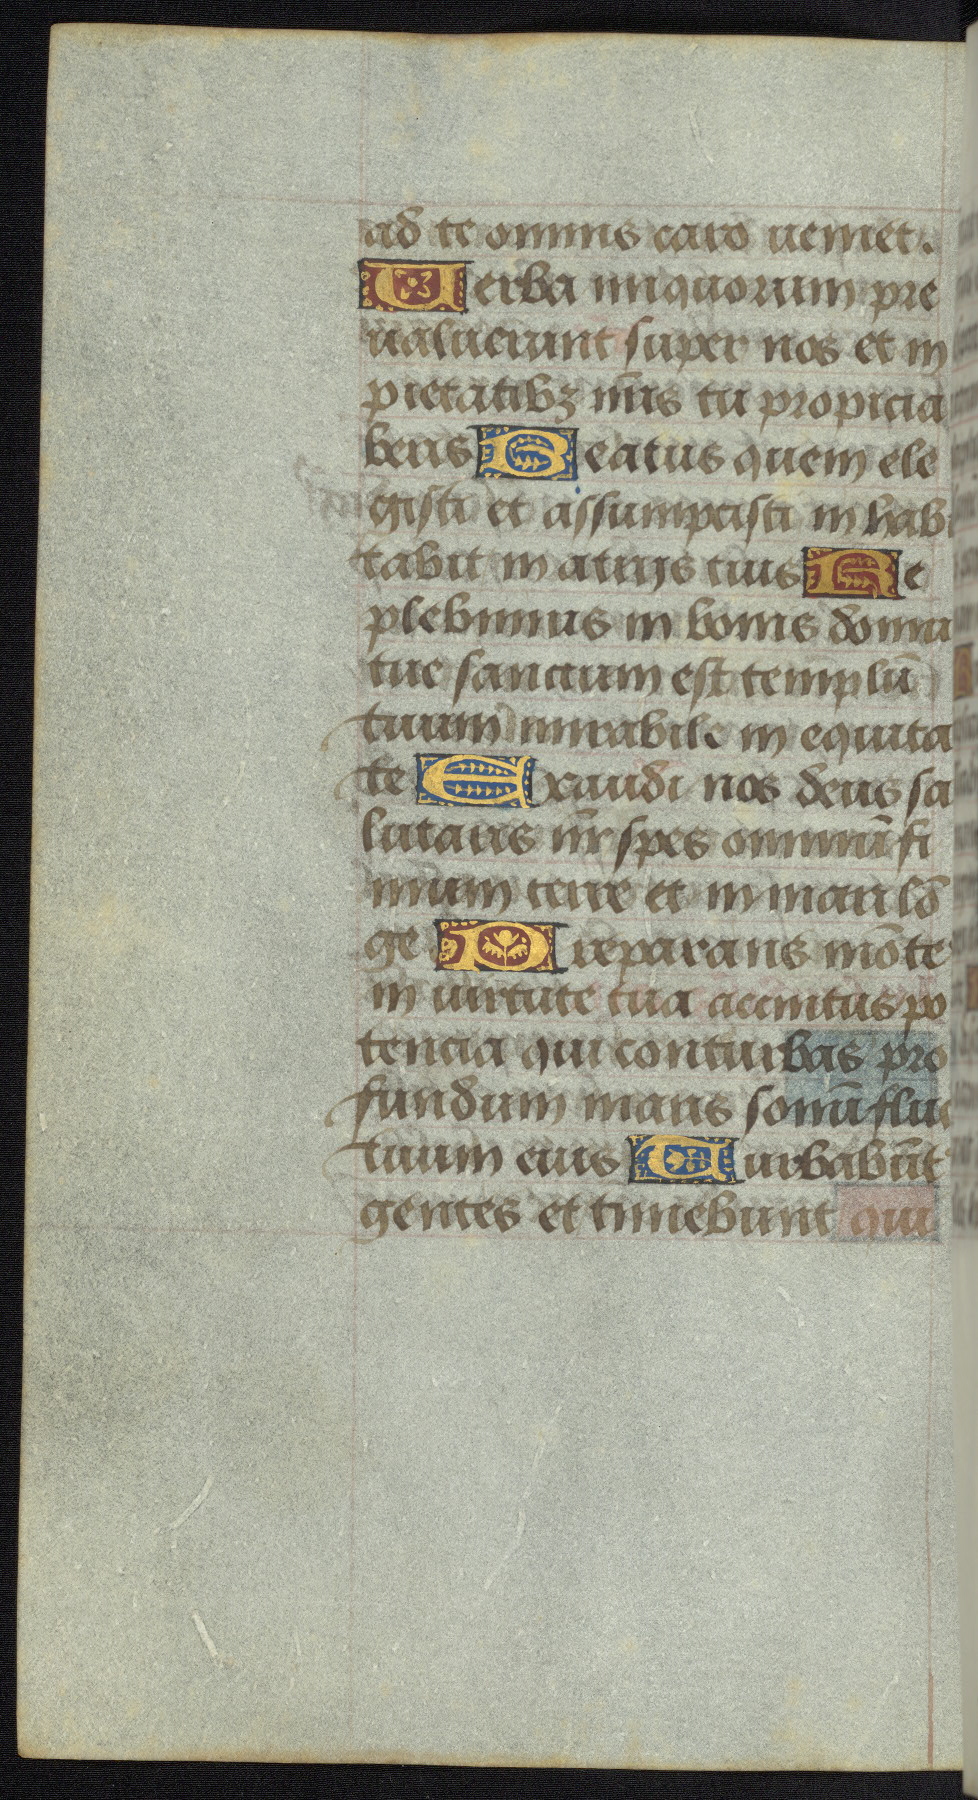 ad te omnis caro veniet.
Verba iniquorum pre
valuerunt super nos et in
pietatibꝫ nr̄is tu propicia
beris Beatus quem ele
gisti et assumpcisti in habi
tabit in atrijs tuis Re
plebimus in bonis domu
tue sanctum est templū
tuum mirabile in equita
te Exaudi nos deus sa
lutaris nr̄ spes omniū fi
nium terre et in mari lō
ge Preparans mōtes
in virtute tua accintus po
tencia qui conturbas pro
fundum maris sonū fluc
tuum eius Turbabūt
gentes et timebunt qui